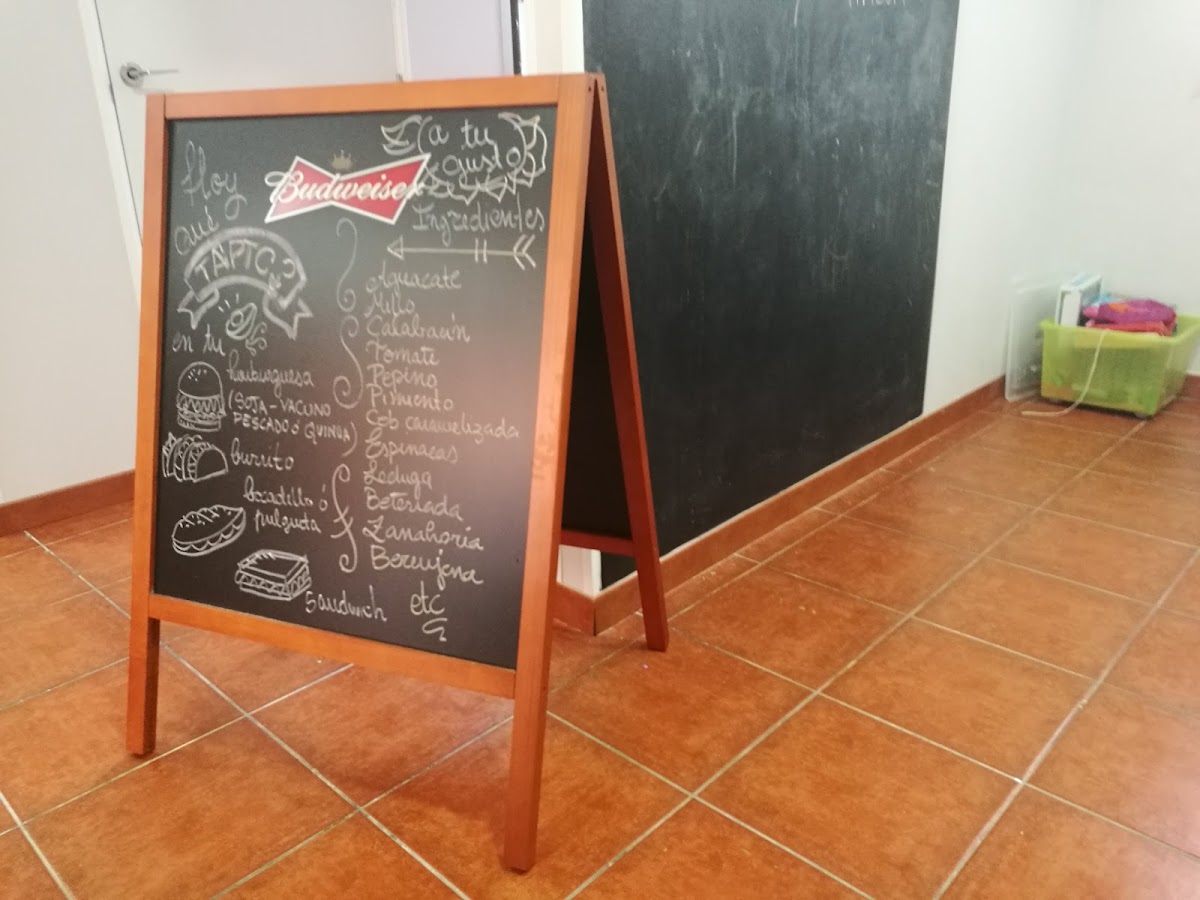 Hoy
Qué
TAPTC?
en tu
hamburguesa
(SOJA-VACUNO
PESCADO ó QUINUA)
burrito
bocadillo ó
pulguita
Sandwich
Budweiser
(a tu
gusto)
Ingredientes
Aguacate
Millo
Calabacín
Tomate
Pepino
Pimiento
Ceb caramelizada
Espinacas
Lechuga
Beterrada
Zanahoria
Berenjena
etc